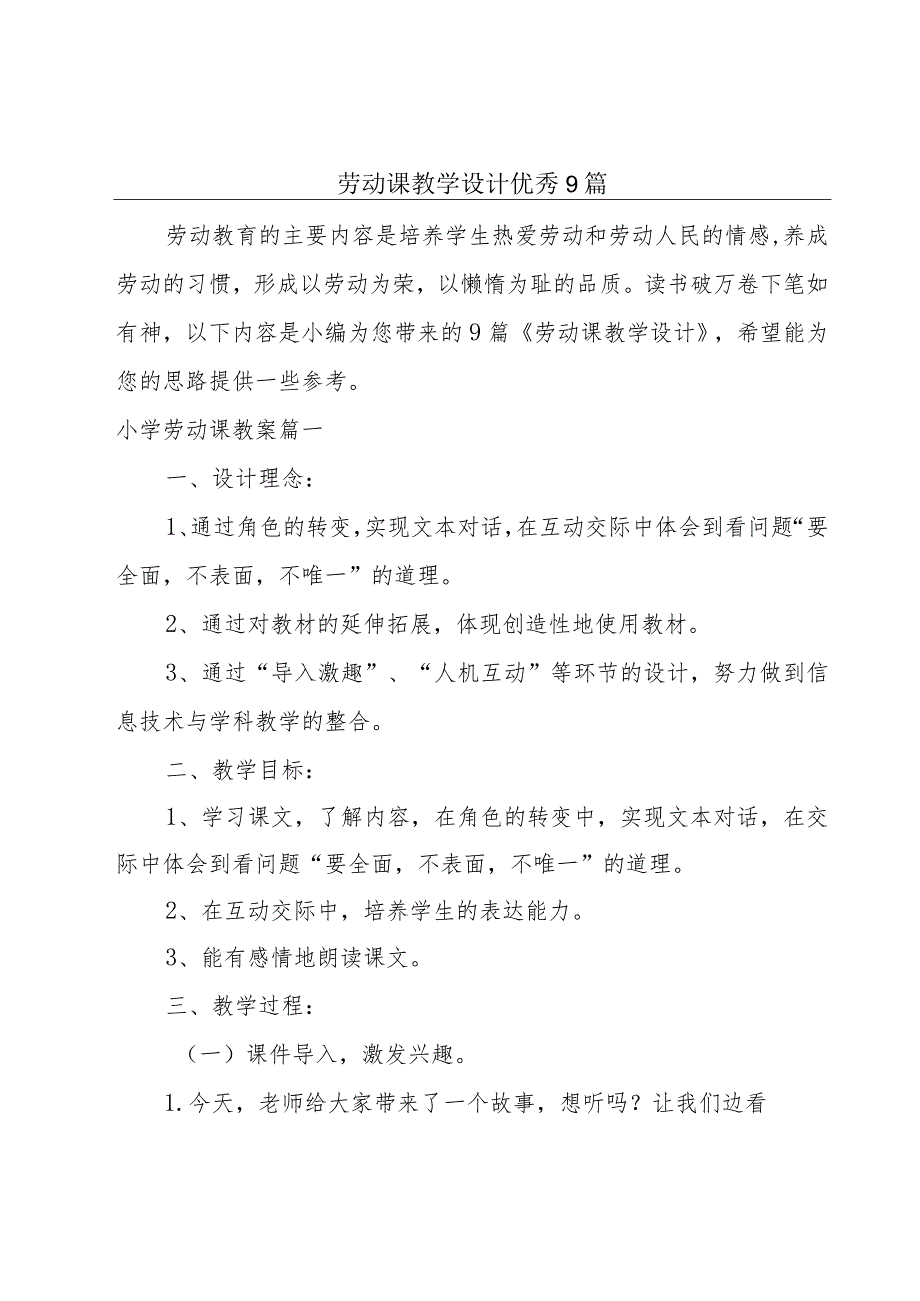 劳动课教学设计优秀9篇
劳动教育的主要内容是培养学生热爱劳动和劳动人民的情感,养成
劳动的习惯，形成以劳动为荣，以懒惰为耻的品质。读书破万卷下笔如
有神，以下内容是小编为您带来的9篇《劳动课教学设计》，希望能为
您的思路提供一些参考。
小学劳动课教案篇一
一、设计理念：
1、通过角色的转变,实现文本对话,在互动交际中体会到看问题“要
全面，不表面，不唯一”的道理。
2、通过对教材的延伸拓展，体现创造性地使用教材。
3、通过“导入激趣”、“人机互动”等环节的设计，努力做到信
息技术与学科教学的整合。
二、教学目标：
1、学习课文，了解内容，在角色的转变中，实现文本对话，在交
际中体会到看问题“要全面，不表面，不唯一”的道理。
2、在互动交际中，培养学生的表达能力。
3、能有感情地朗读课文。
三、教学过程：
（一）课件导入，激发兴趣。
1.今天，老师给大家带来了一个故事，想听吗？让我们边看